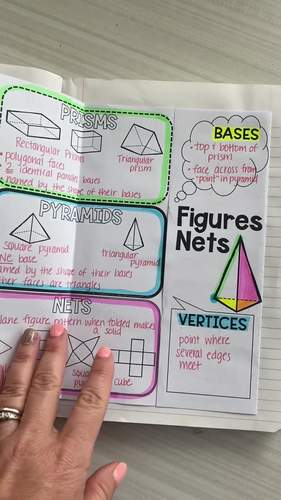 PRISMS
Rectangular Prisms
Triangular
prism
• polygonal faces
• 2 identical parallel bases
named by the shape of their bases
PYRAMIDS
square pyramid
triangular
pyramid
base
named by the shape of their bases
faces are triangles
NETS
plane figure pattern when folded makes
a solid
cube
BASES
• top & bottom of
prism
• face across from
"point" in pyramid
Figures
Nets
VERTICES
point where
several edges
meet